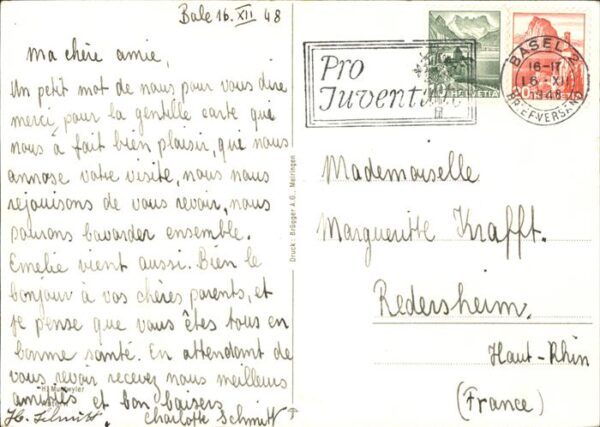 Bale 16. XII 48
ma chère amie,
Un petit mot de nous pour vous dire
merci pour la gentille carte que
nous à fait bien plaisir, que nous
annose votre visite, nous nous
rejouisons de vous revoir, nous
pourons bavarder ensemble.
Emelie vient aussi. Bien le
bonjour à vos chères parents, et
je pense que vous êtes tous en
bonne santé. En attendant de
vous revoir recevez nous meilleurs
amitiés et bon baisers
H. Schmitt. Charlotte Schmitt
Druck: Brügger A.G., Meiringen
Pro
Juventute
HELVETIA
BASEL 2
16-17
16.XII
1948
BRIEFVERSAND
Mademoiselle
Margueritte Krafft.
Redersheim.
Haut-Rhin
(France)